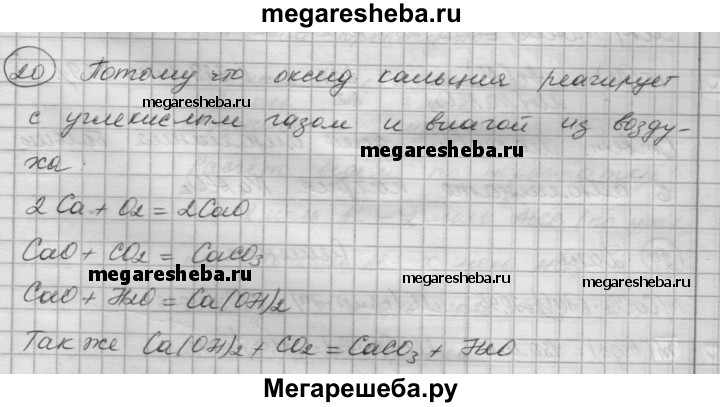 megaresheba.ru
20 Потому что оксид кальция реагирует
megaresheba.ru
с углекислым газом и влагой из возду-
megaresheba.ru
ха.
2Ca + O2 = 2CaO
CaO + CO2 = CaCO3
megaresheba.ru
megaresheba.ru
CaO + H2O = Ca(OH)2
Также Ca(OH)2 + CO2 = CaCO3 + H2O
Мегарешеба.ру